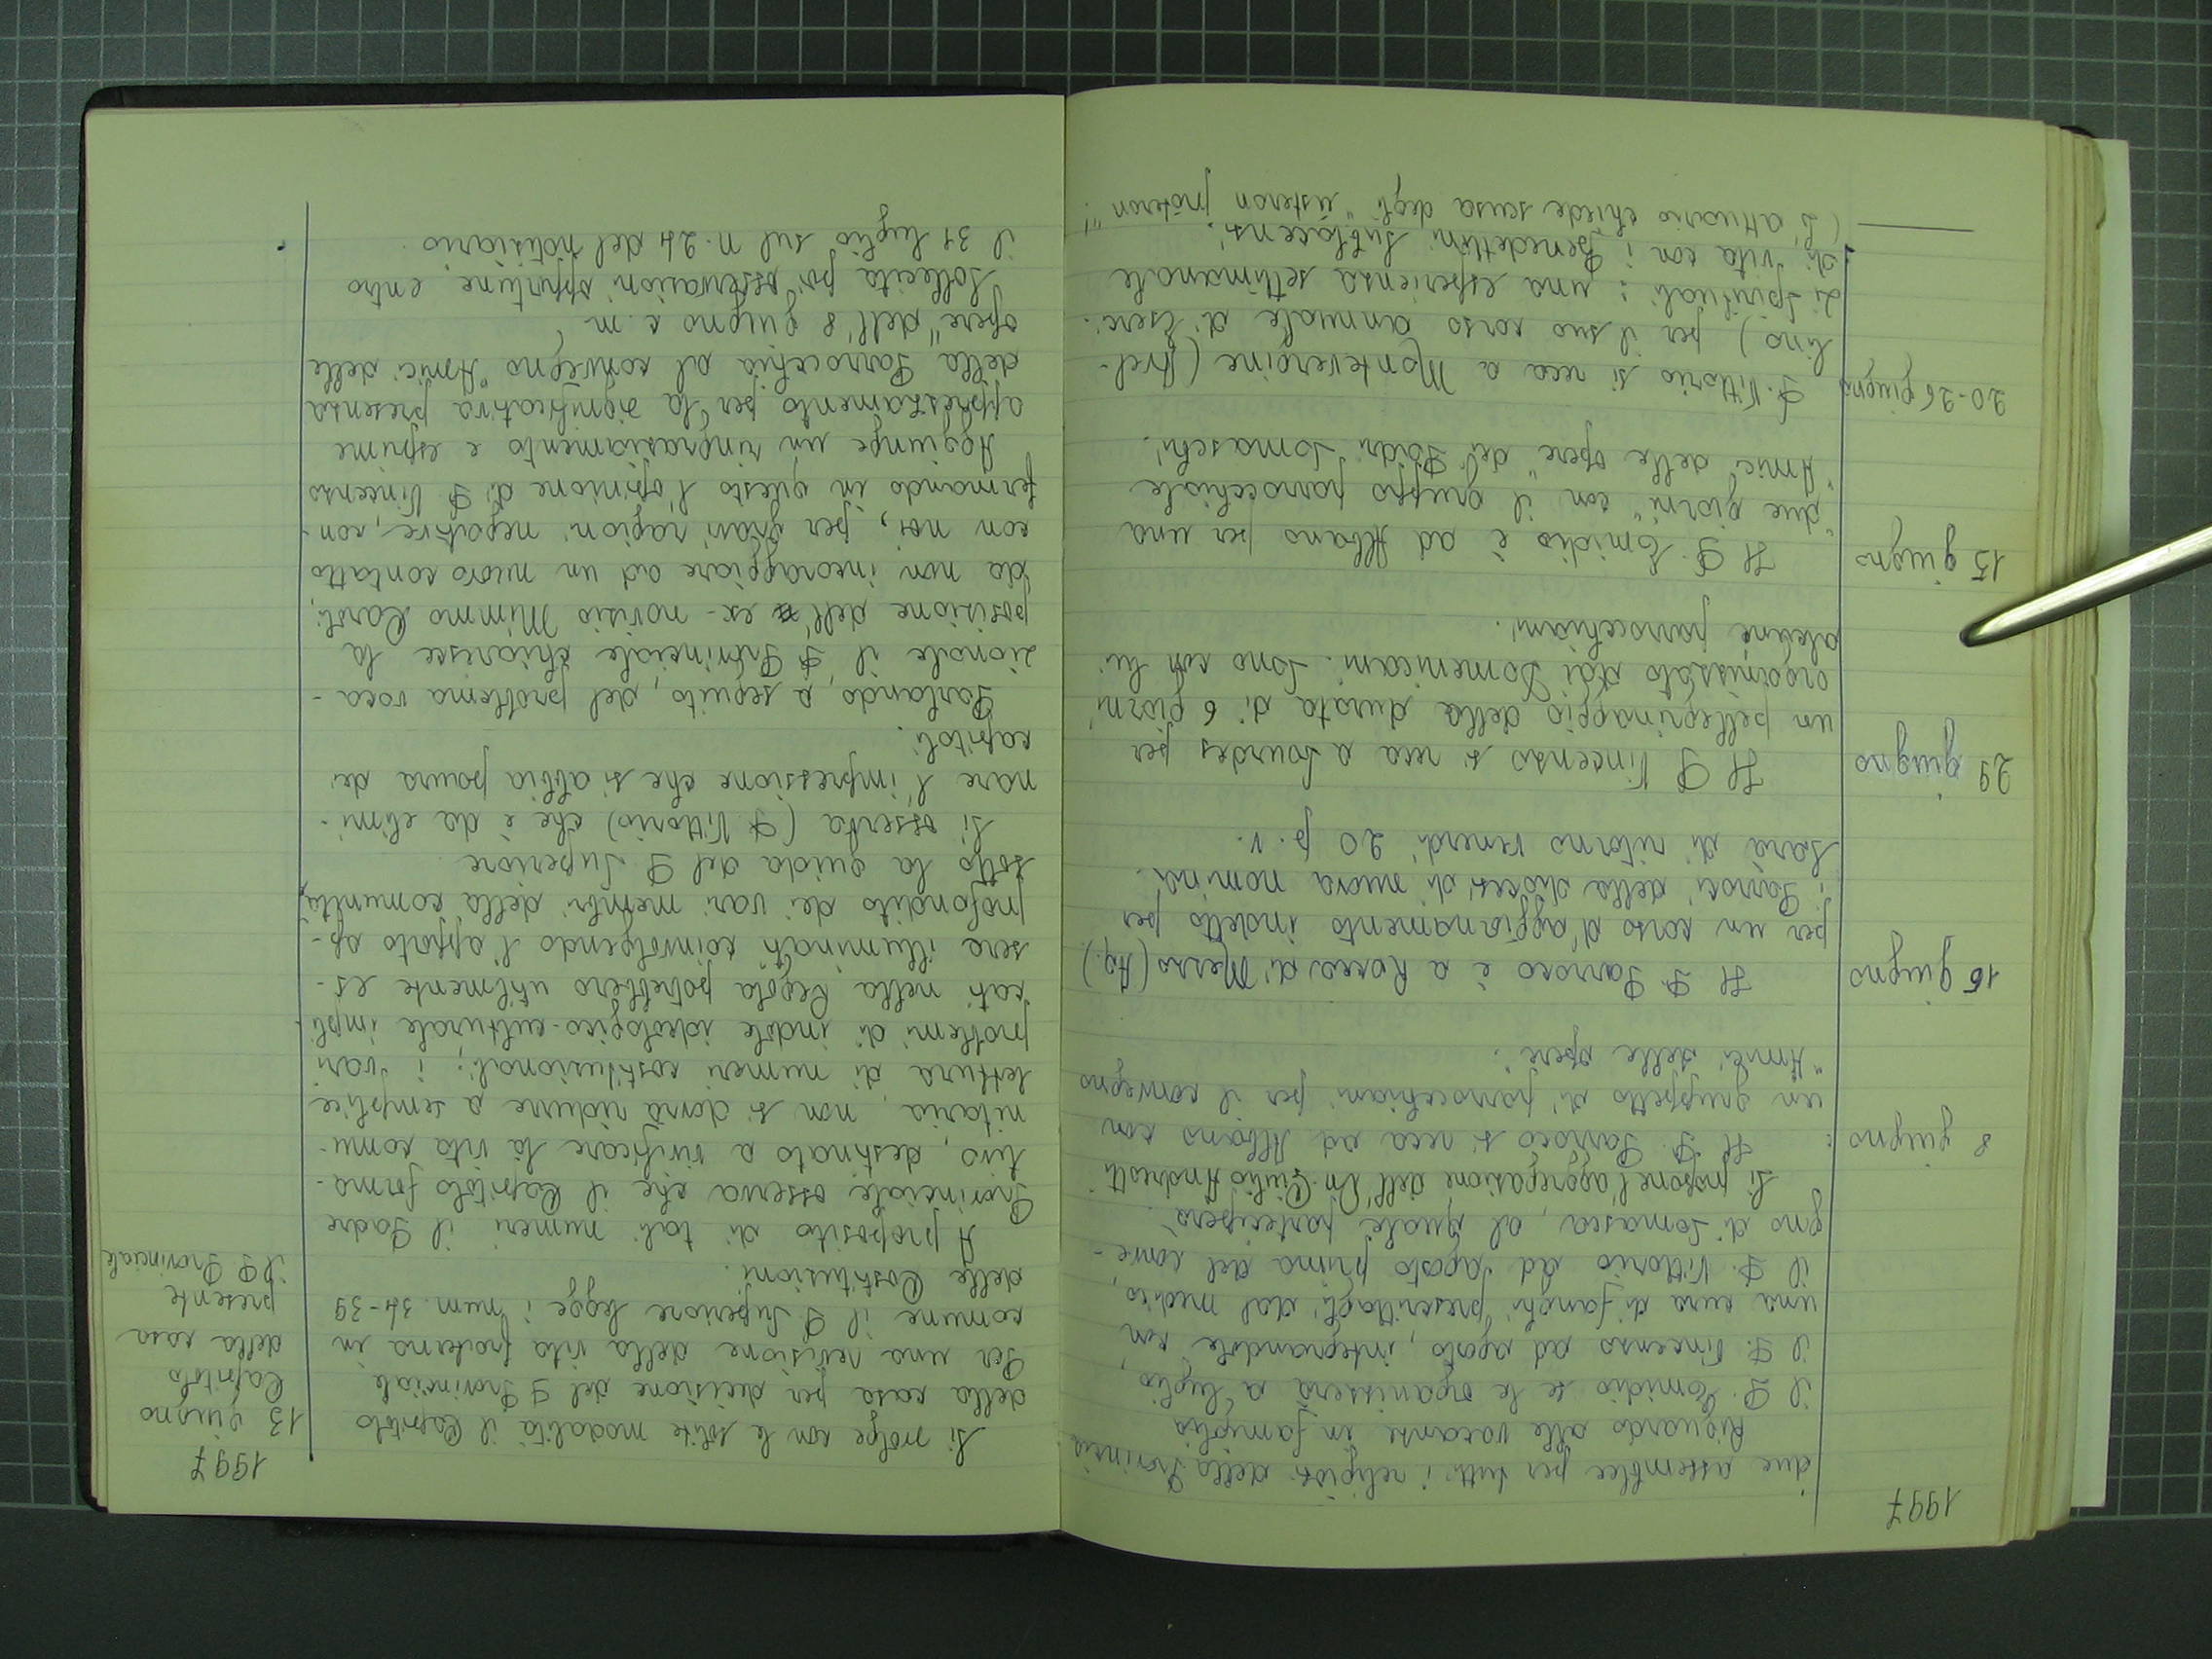 1997
due assemblee per tutti i religiosi della Provincia
Riguardo alle vacanze in famiglia
il P. Emidio se le organizzerà a luglio,
il P. Vincenzo ad agosto, integrandole con
una cura di fanghi prescrittagli dal medico,
il P. Vittorio ad agosto prima del conve-
gno di Somasca, al quale parteciperà.
Si propone l'aggregazione dell'On. Giulio Andreotti
8 giugno : Il P. Parroco si reca ad Albano con
un gruppetto di parrocchiani per il convegno
"Amici delle opere".
16 giugno Il P. Parroco è a Rocca di Mezzo (Aq.)
per un corso d'aggiornamento indetto per
i Parroci della diocesi di nuova nomina.
Sarà di ritorno venerdì 20 p.v.
29 giugno Il P. Vincenzo si reca a Lourdes per
un pellegrinaggio della durata di 6 giorni
organizzato dai Domenicani. Sono con lui
alcune parrocchiani.
15 giugno Il P. Emidio è ad Albano per una
"due giorni" con il gruppo parrocchiale
"Amici delle opere" dei Padri Somaschi.
20-26 giugno P. Vittorio si reca a Montevergine (Avel-
lino) per il suo corso annuale di Eserci-
zi Spirituali: una esperienza settimanale
di vita con i Benedettini Sublacensi.
(L'attuario chiede scusa degli "ústeron próteron".
1997
13 giugno
Capitolo
della casa
presente
il P. Provinciale
Si svolge con le solite modalità il Capitolo
della casa per decisione del P. Provinciale
Per una revisione della vita fraterna in
comune il P. Superiore legge i num. 34-39
delle Costituzioni.
A proposito di tali numeri il Padre
Provinciale osserva che il Capitolo forma-
tivo, destinato a vivificare la vita comu-
nitaria, non si dovrà ridurre a semplice
lettura di numeri costituzionali; i vari
problemi di indole ideologico-culturale impli-
cati nella Regola potrebbero utilmente es-
sere illuminati coinvolgendo l'apporto ap-
profondito dei vari membri della comunità,
sotto la guida del P. Superiore.
Si osserva (P. Vittorio) che è da elimi-
nare l'impressione che si abbia paura dei
capitoli.
Parlando, a seguito, del problema voca-
zionale il P. Provinciale chiarisce la
posizione dell'ex-novizio Mimmo Caroli,
da non incoraggiare ad un nuovo contatto
con noi, per gravi ragioni negative, con-
fermando in questo l'opinione di P. Vincenzo
Aggiunge un ringraziamento e esprime
apprezzamento per la significativa presenza
della Parrocchia al convegno "Amici delle
opere" dell'8 giugno c.m.
Sollecita poi osservazioni opportune, entro
il 31 luglio sul n. 24 del notiziario.